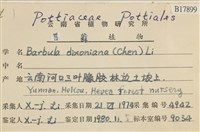 Pottiaceae Pottiales
B17899
云南省植物研究所
苔藓植物
学名 Barbula dixoniana (Chen) Li
中名
产地 云南河口三叶橡胶林边土坡上
Yunnan. Hekou, Hevea forest
采集人 X-j. Li 21.IX 1974 采集号 4942
鉴定人 X-j. Li 1980.11. 标本室号 9054